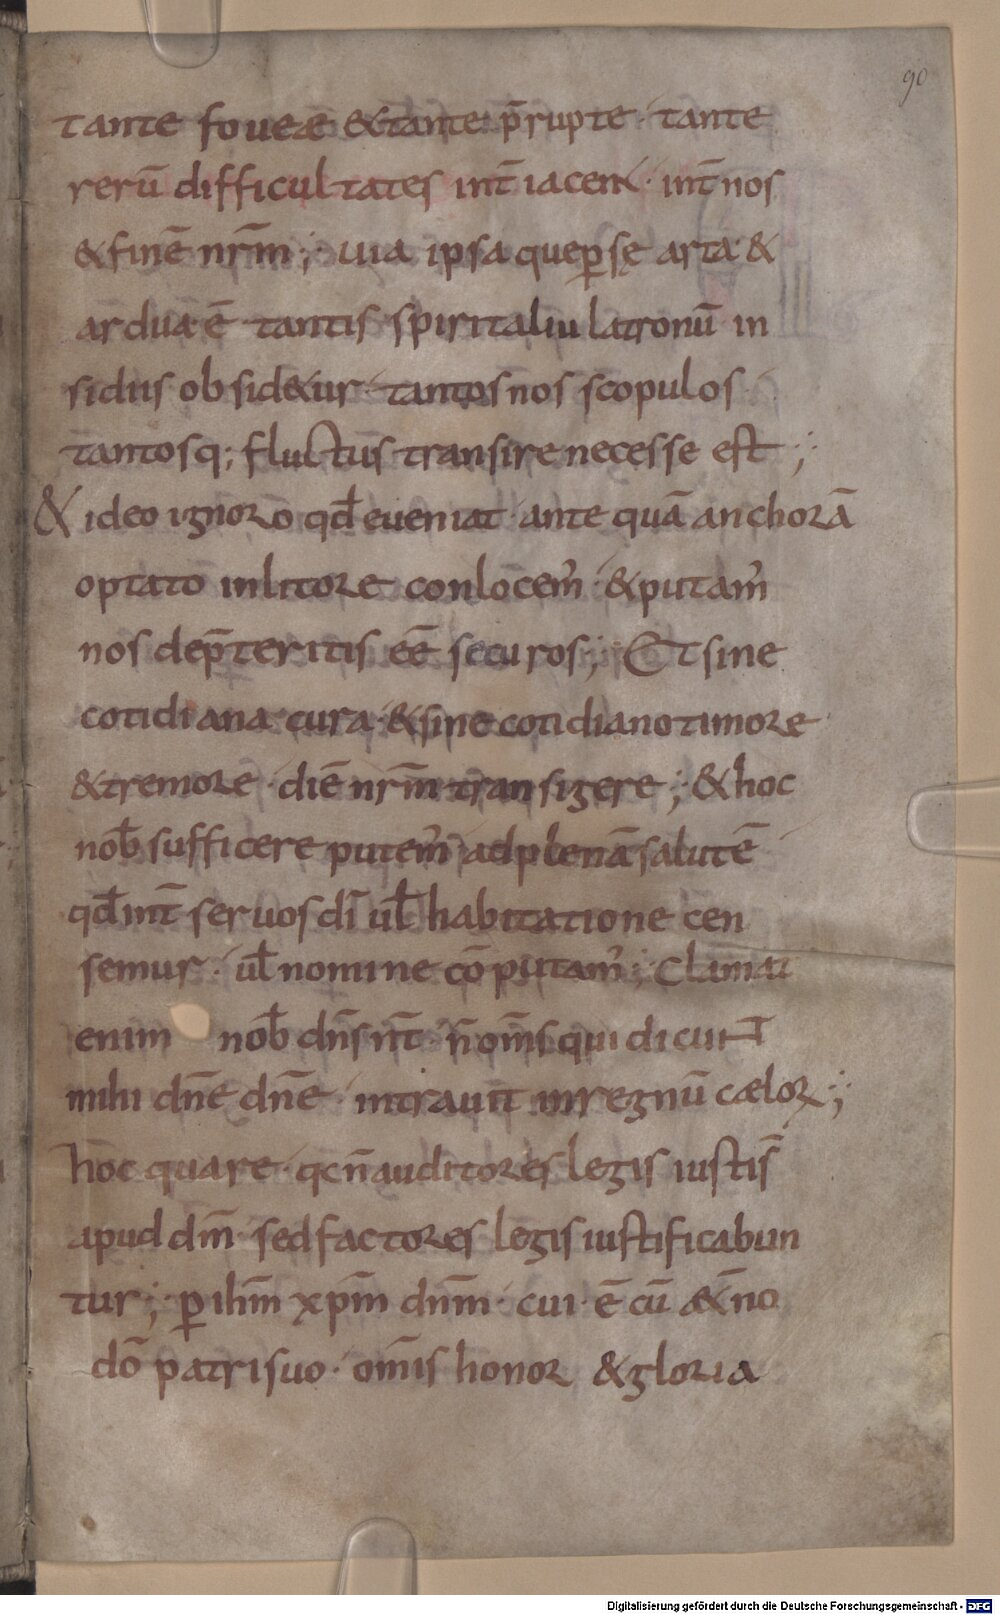 90
tante foueæ &tante p̄rupte · tante
rerū difficultates int̄ iacent · int̄ nos
&finē nr̄m ; uia ipsa queꝑsę arta &
ardua ē tantis spiritaliu latronū in
sidiis obsid&ur · tantos nos scopulos ·
tantosq; fluctus transire necesse est ;
& ideo ignoro qd̄ eueniat · ante quā anchorā
optato inlitore conlocem̄ · &putam̄
nos dep̄teritis eē securos ; Et sine
cotidiana cura · &sine cotidiano timore
&tremore · diē nr̄m transigere ; &hoc
nob̄ sufficere putem̄ adplenā salutē
qd̄ int̄ seruos dī ul̄ habitatione cen
semur · ul̄ nomine cōputam̄ ; Clamat
enim nob̄ dn̄s nt̄ · n̄ om̄s qui dicunt
mihi dn̄e dn̄e · intraun̄t inregnū cælor ;
hoc quare · qcn̄ auditores legis iusti s̄
apud dm̄ · sed factores legis iustificabun
tur ; ꝑ ihm̄ xpm̄ dnm̄ · cui ē cū æt̄no
dō patri suo · om̄is honor &gloria
Digitalisierung gefördert durch die Deutsche Forschungsgemeinschaft - DFG